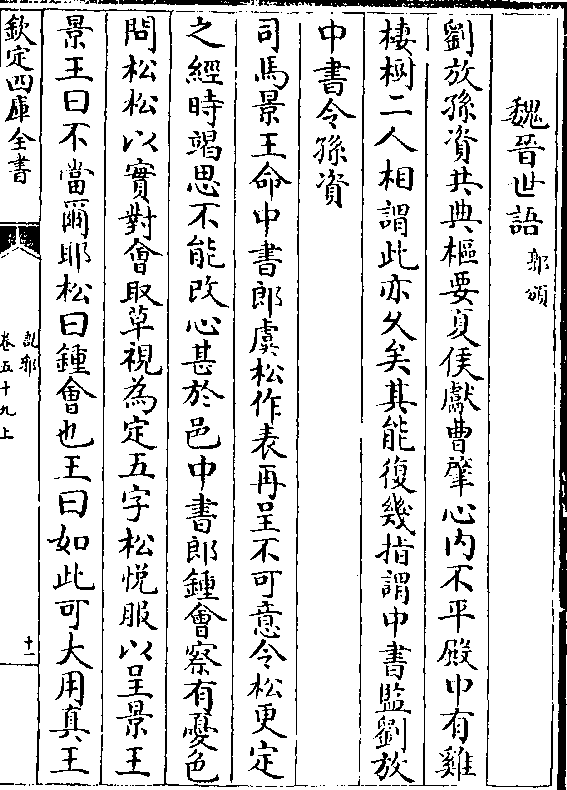 魏晉世語 郭頒
劉放孫資共典樞要夏侯獻曹肇心内不平殿中有雞
棲樹二人相謂此亦乆矣其能復幾指謂中書監劉放
中書令孫資
司馬景王命中書郎虞松作表再呈不可意令松更定
之經時竭思不能改心甚於邑中書郎鍾會察有憂色
問松松以實對會取草視為定五字松悦服以呈景王
景王曰不當爾耶松曰鍾會也王曰如此可大用真王
欽定四庫全書
說郛
卷五十九上
十一